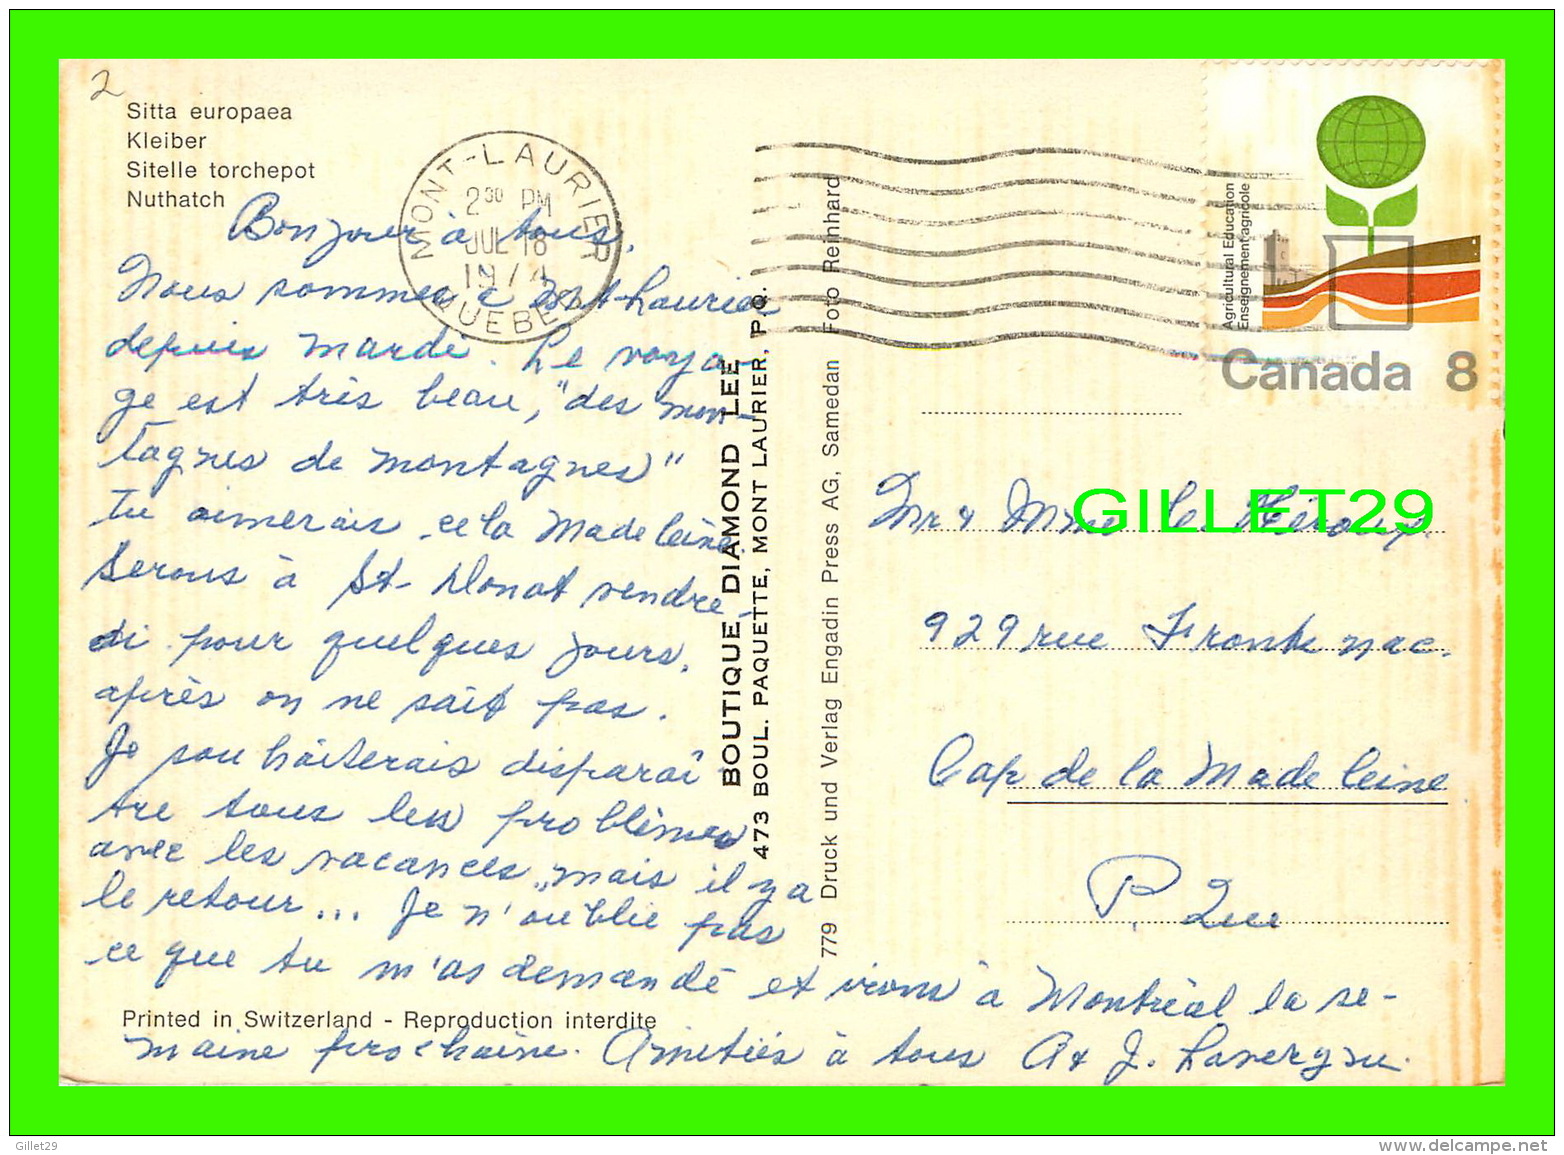 2
Sitta europaea
Kleiber
Sitelle torchepot
Nuthatch
MONT-LAURIER
2 30 PM
JUL 18
1974
QUEBEC
Bonjour à tous.
Nous sommes à Mt-Laurier
depuis mardi. Le voya-
ge est très beau, "des mon-
tagnes de montagnes"
tu aimerais cela Madeleine.
Serons à St-Donat vendre-
di pour quelques jours,
après on ne sait pas.
Je souhaiterais disparaî-
tre tous les problèmes
avec les vacances, mais il y a
le retour... Je n'oublie pas
ce que tu m'as demandé et irons à Montréal la se-
maine prochaine. Amitiés à tous A & J. Lavergne.
Printed in Switzerland - Reproduction interdite
BOUTIQUE DIAMOND LEE
473 BOUL. PAQUETTE, MONT LAURIER, P.Q.
779 Druck und Verlag Engadin Press AG, Samedan Foto Reinhard
Agricultural Education
Enseignement agricole
Canada 8
Mr & Mme Héroux
GILLET29
929 rue Frontenac.
Cap de la Madeleine
P. Que
Gillet29
http://www.delcampe.net